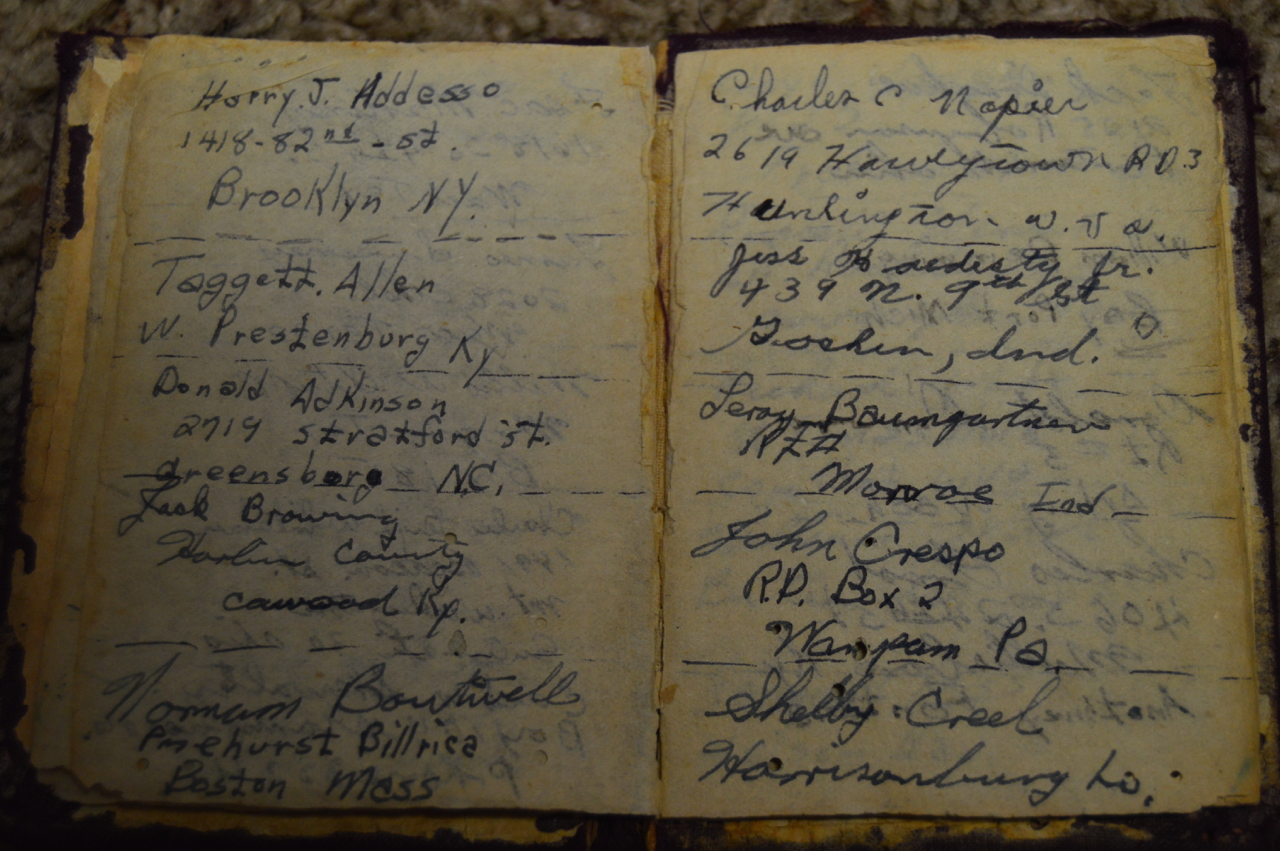 Harry J. Addesso
1418-82nd-st.
Brooklyn NY.
Taggett. Allen
W. Prestenburg Ky
Donald Adkinson
2719 stratford st.
Greensborg N.C,
Jack Browing
Harlin County
cawood Ky.
Normam Boutwell
Pinehurst Billrica
Boston Mass
Charles C Napier
2619 R.D.3
Huntington w. va.
Jess Hardesty Jr.
439 N. 9th st
Goshen, Ind.
Leroy Baumgartner
Monroe Ind
John Crespo
R.D. Box 2
Wampam Pa.
Shelby Creel
Harrisonburg La.